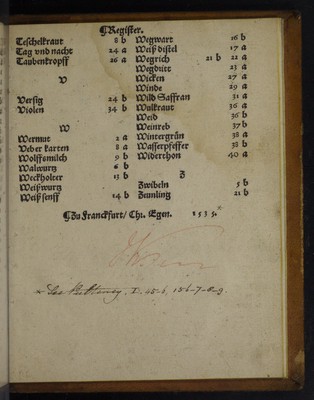 ¶Register.
Teschelkraut 8 b
Tag vnd nacht 24 a
Taubenkropff 26 a
V
Versig 24 b
Violen 34 b
W
Wermut 2 a
Weber karten 8 a
Wolffsmilch 9 b
Walwurtz 6 b
Weckholter 13 b
Weißwurtz
Weiß senff 14 b
Wegwart 16 b
Weiß distel 17 a
Wegrich 21 b 22 a
Wegdritt 23 a
Wicken 27 a
Winde 29 a
Wild Saffran 31 a
Wulkraut 36 a
Weid 36 b
Weinreb 37 b
Wintergrün 38 a
Wasserpfeffer 38 b
Widerthon 40 a
Z
Zwibeln 5 b
Zeunling 21 b
¶Zu Franckfurt/ Chr. Egen. 1535.